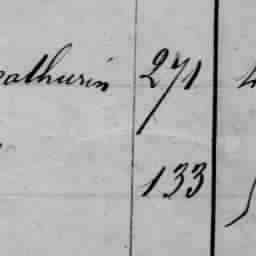 athurin 271
133